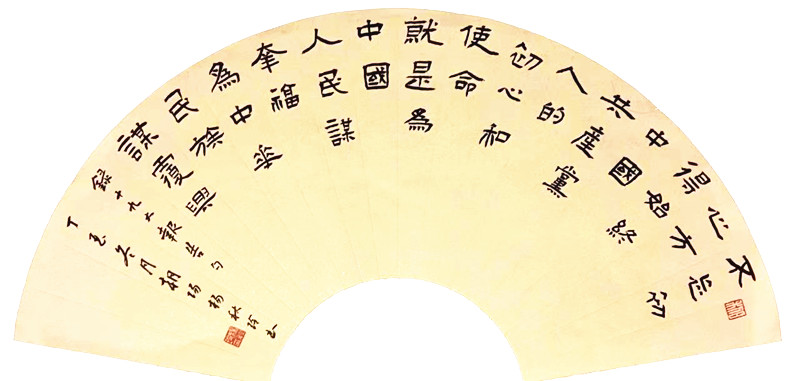 不忘初
心方
得始終
中國
共產黨
人的
初心和
使命
就是為
中國
人民謀
幸福
為中華
民族
謀復興
錄十九大報告句
丁酉冬月 陽楊秋 書